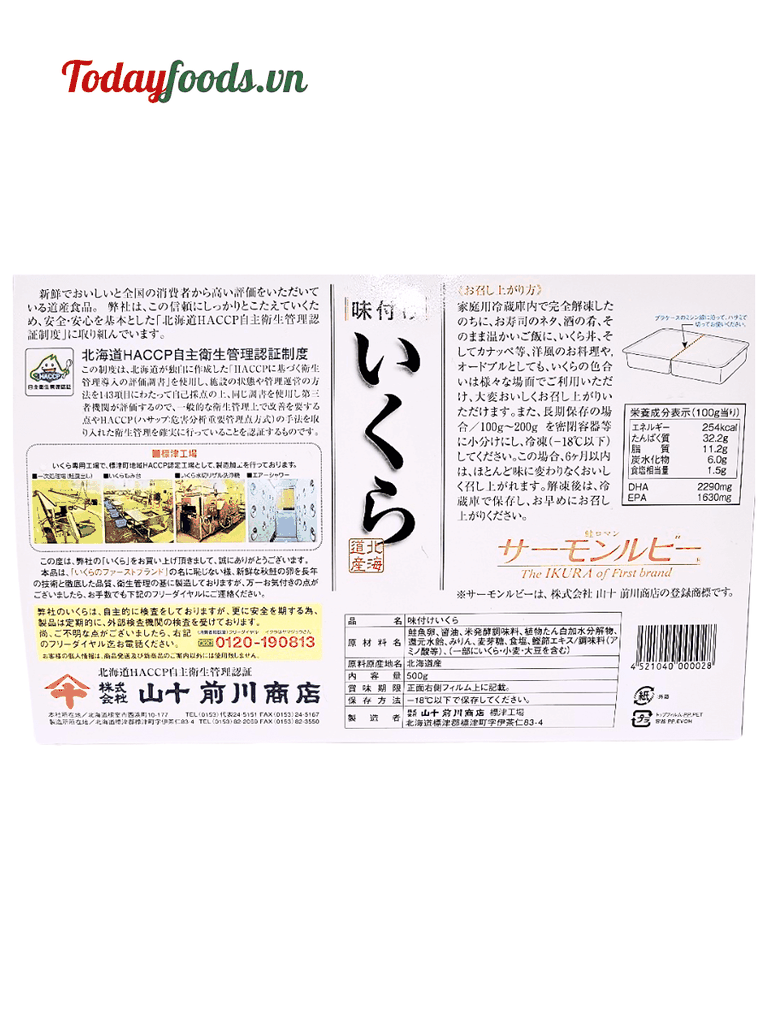 Todayfoods.vn
新鮮でおいしいと全国の消費者から高い評価をいただいて
いる道産食品。弊社は、この信頼にしっかりとこたえていくた
め、安全・安心を基本とした「北海道HACCP自主衛生管理認
証制度」に取り組んでいます。
HACCP
自主衛生管理認証
北海道HACCP自主衛生管理認証制度
この制度は、北海道が独自に作成した「HACCPに基づく衛生
管理導入の評価調書」を使用し、施設の状態や管理運営の方
法を143項目にわたって自己採点の上、同じ調書を使用し第三
者機関が評価するので、一般的な衛生管理上で改善を要する
点やHACCP(ハサップ:危害分析重要管理点方式)の手法を取
り入れた衛生管理を確実に行っていることを認証するものです。
■標津工場
いくら専用工場で、標津町地域HACCP認定工場として、製造加工を行っております。
■いくらもみ台
■エアーシャワー
この度は、弊社の「いくら」をお買い上げ頂きまして、誠にありがとうございます。
本品は、「いくらのファーストブランド」の名に恥じない様、新鮮な秋鮭の卵を長年
の技術と徹底した品質、衛生管理の基に製造しておりますが、万一お気付きの点が
ございましたら、お手数でも下記のフリーダイヤルにご連絡ください。
弊社のいくらは、自主的に検査をしておりますが、更に安全を期する為、
製品は定期的に、外部検査機関の検査を受けております。
尚、ご不明な点がございましたら、右記
のフリーダイヤル迄お電話ください。
0120-190813
お客様の個人情報は、商品発送及び新商品のご案内以外には使用致しません。
北海道HACCP自主衛生管理認証
株式会社 山十 前川商店
味付け
いくら
北海道産
《お召し上がり方》
家庭用冷蔵庫内で完全解凍した
のちに、お寿司のネタ、酒の肴、そ
のまま温かいご飯に、いくら丼、そ
してカナッペ等、洋風のお料理や、
オードブルとしても、いくらの色合
いは様々な場面でご利用いただ
け、大変おいしくお召し上がりい
ただけます。また、長期保存の場
合／100g〜200g を密閉容器等
に小分けにし、冷凍(−18℃以下)
してください。この場合、6ヶ月以内
は、ほとんど味に変わりなくおいし
く召し上がれます。解凍後は、冷
蔵庫で保存し、お早めにお召し
上がりください。
プラケースのミシン線に沿って、ハサミで
切ってお使いください。
栄養成分表示(100g当り)
エネルギー 254kcal
たんぱく質 32.2g
脂質 11.2g
炭水化物 6.0g
食塩相当量 1.5g
DHA 2290mg
EPA 1630mg
鮭ロマン
サーモンルビー
The IKURA of First brand
※サーモンルビーは、株式会社 山十 前川商店の登録商標です。
品名 味付けいくら
原材料名 鮭魚卵、醤油、米発酵調味料、植物たん白加水分解物、
還元水飴、みりん、麦芽糖、食塩、鰹節エキス/調味料(ア
ミノ酸等)、(一部にいくら・小麦・大豆を含む)
原料原産地名 北海道産
内容量 500g
賞味期限 正面右側フィルム上に記載。
保存方法 −18℃以下で保存してください。
製造者 株式会社 山十 前川商店 標津工場
北海道標津郡標津町字伊茶仁83-4
4 521040 000028
紙 外箱
プラ トップフィルム:PP,PET
容器:PP,EVOH